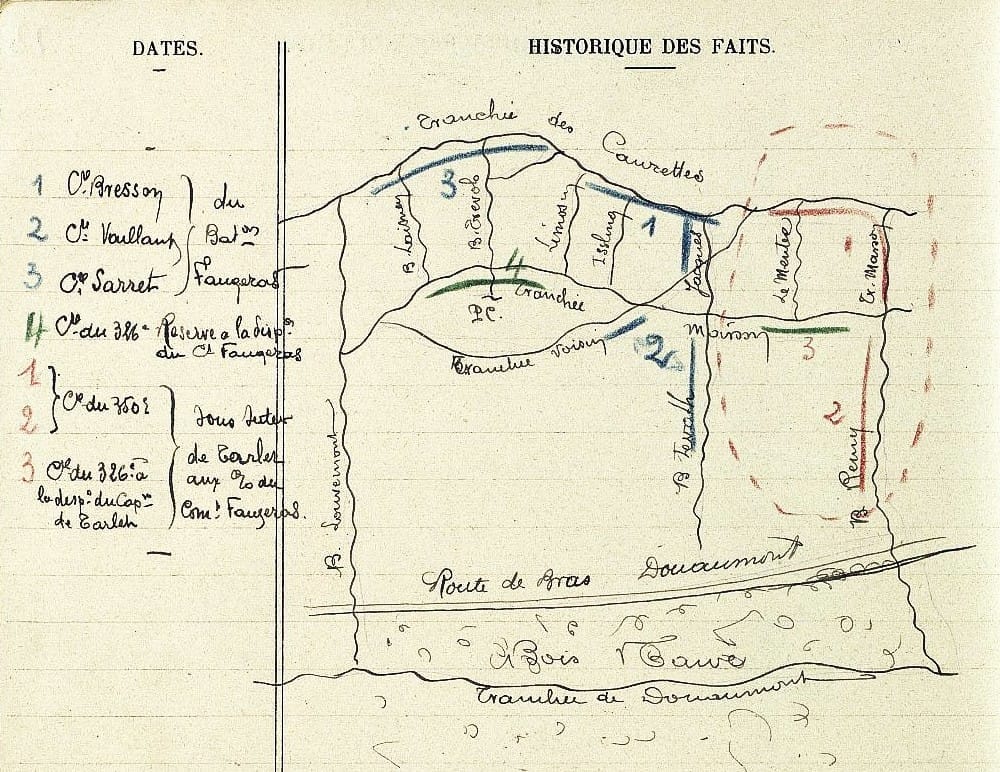 DATES.
HISTORIQUE DES FAITS.
1 Cie Bresson
2 Cie Vaillant
3 Cie Sarret
du
Baton
Faugeras
4 Cie du 326e Reserve a la dispon
du Ct Faugeras
1
2
Cie du 350e
3 Cie du 326e à
la dispon du Capne
de Tarlet
sous
de Tarlet
aux du
Comt Faugeras.
Tranchée des Caurettes
3
1
B.
B.
Limousin
Issling
Jacques
Le Mentec
Tr. Masson
4
Tranchée
P.C.
Tranchée Voisin
2
Moisson
3
2
B.
B.
B. Louvemont
Route de Bras Douaumont
Bois
Tranchée de Douaumont